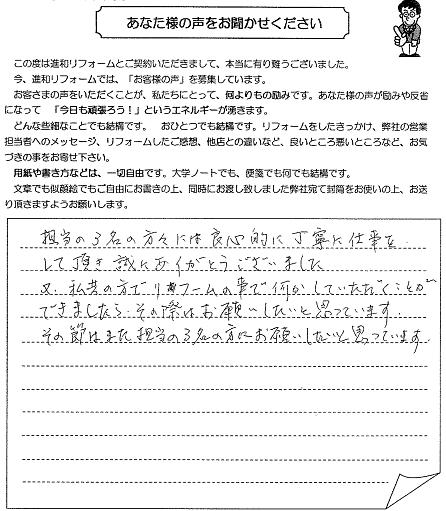 あなた様の声をお聞かせください
この度は進和リフォームとご契約いただきまして、本当に有り難うございました。
今、進和リフォームでは、「お客様の声」を募集しています。
お客さまの声をいただくことが、私たちにとって、何よりもの励みです。あなた様の声が励みや反省
になって　「今日も頑張ろう！」というエネルギーが湧きます。
どんな些細なことでも結構です。　おひとつでも結構です。リフォームをしたきっかけ、弊社の営業
担当者へのメッセージ、リフォームしたご感想、他店との違いなど、良いところ悪いところなど、お気
づきの事をお寄せ下さい。
用紙や書き方などは、一切自由です。大学ノートでも、便箋でも何でも結構です。
文章でも似顔絵でもご自由にお書きの上、同時にお渡し致しました弊社宛て封筒をお使いの上、お送
り頂きますようお願いします。
担当の3名の方々には良心的に丁寧に仕事を
して頂き誠にありがとうございました
又、私共の方でリフォームの事で何かしていただくことが
できましたら、その際はお願いしたいと思っています.
その節はまた担当の3名の方にお願いしたいと思っています.